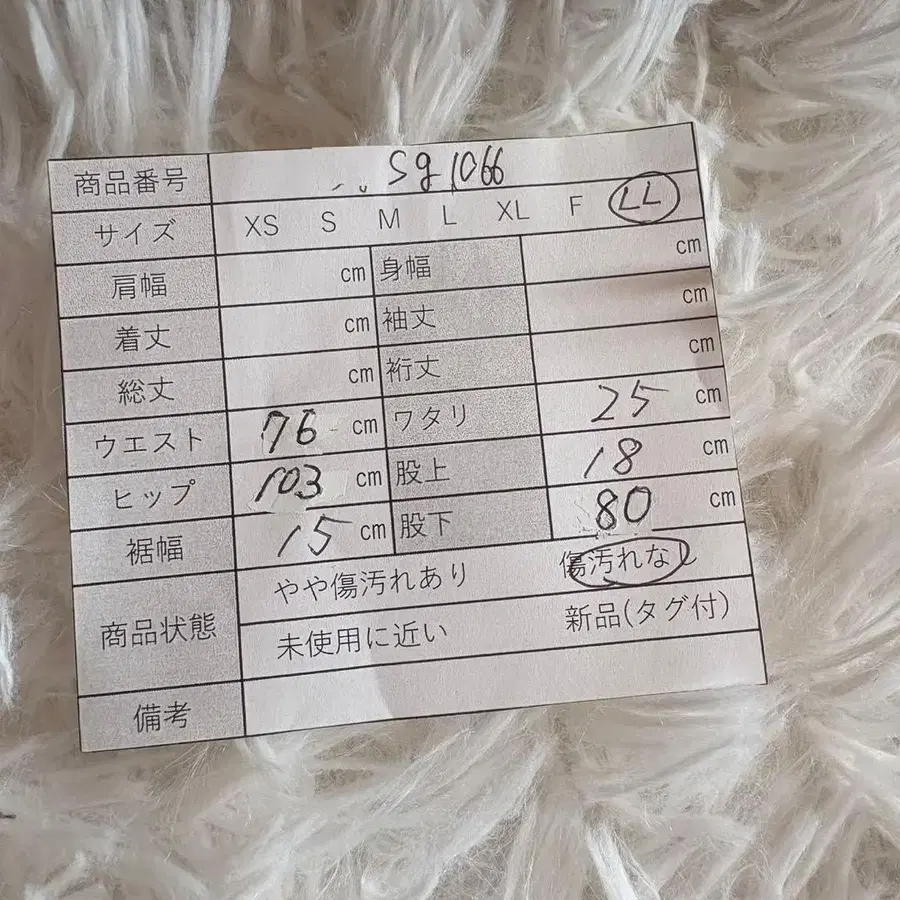 商品番号 Sg1066
サイズ XS S M L XL F LL
肩幅 cm 身幅 cm
着丈 cm 袖丈 cm
総丈 cm 裄丈 cm
ウエスト 76 cm ワタリ 25 cm
ヒップ 103 cm 股上 18 cm
裾幅 15 cm 股下 80 cm
商品状態 やや傷汚れあり 傷汚れなし
未使用に近い 新品(タグ付)
備考